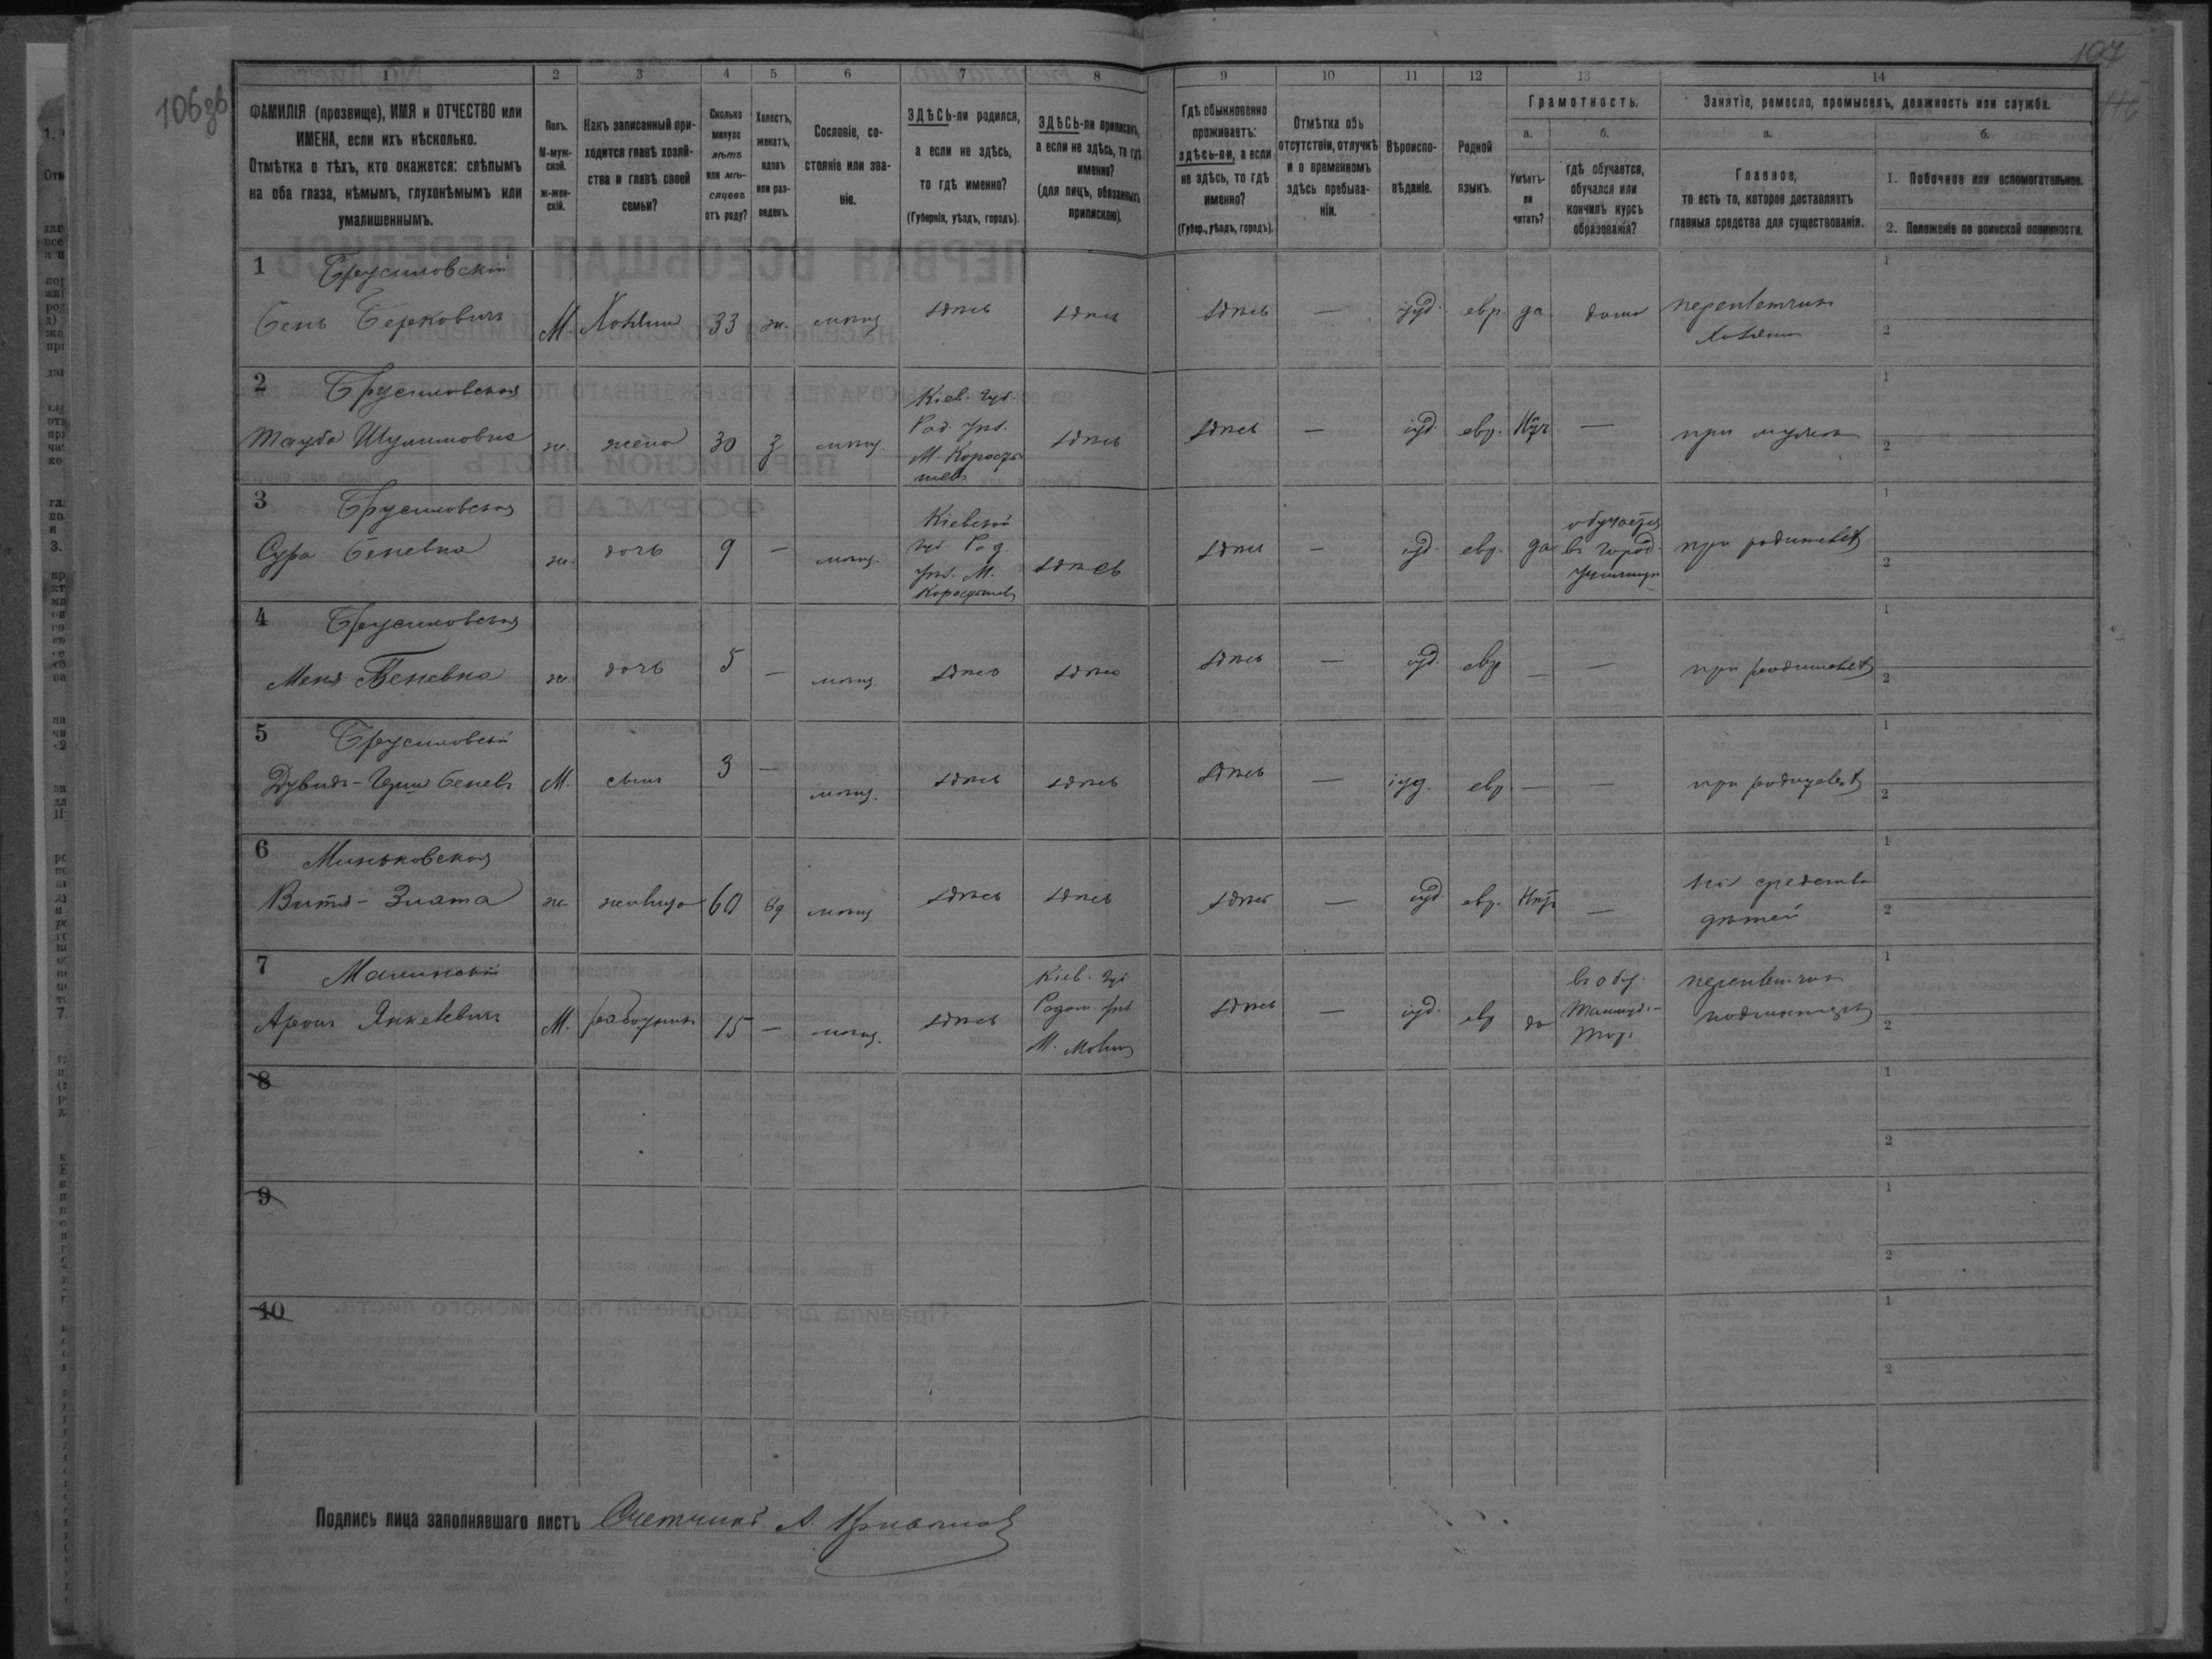 106зв
107
1 2 3 4 5 6 7 8 9 10 11 12 13 14
ФАМИЛІЯ (прозвище), ИМЯ и ОТЧЕСТВО или
ИМЕНА, если ихъ нѣсколько.
Отмѣтка о тѣхъ, кто окажется: слѣпымъ
на оба глаза, нѣмымъ, глухонѣмымъ или
умалишеннымъ.
Полъ.
М-муж-
ской.
ж-жен-
скій.
Какъ записанный при-
ходится главѣ хозяй-
ства и главѣ своей
семьи?
Сколько
минуло
лѣтъ
или мѣ-
сяцевъ
отъ роду?
Холостъ,
женатъ,
вдовъ
или раз-
веденъ.
Сословіе, со-
стояніе или зва-
ніе.
ЗДѢСЬ-ли родился,
а если не здѣсь,
то гдѣ именно?
(Губернія, уѣздъ, городъ).
ЗДѢСЬ-ли приписанъ,
а если не здѣсь, то гдѣ
именно?
(для лицъ, обязанныхъ
припискою).
Гдѣ обыкновенно
проживаетъ:
здѣсь-ли, а если
не здѣсь, то гдѣ
именно?
(Губер., уѣздъ, городъ).
Отмѣтка объ
отсутствіи, отлучкѣ
и о временномъ
здѣсь пребыва-
ніи.
Вѣроиспо-
вѣданіе.
Родной
языкъ.
Грамотность.
а.
Умѣетъ-
ли
читать?
б.
гдѣ обучается,
обучался или
кончилъ курсъ
образованія?
Занятіе, ремесло, промыселъ, должность или служба.
а.
Главное,
то есть то, которое доставляетъ
главныя средства для существованія.
б.
1. Побочное или вспомогательное.
2. Положеніе по воинской повинности.
1 Брусиловскій
Бень Беркович М. Хозяин 33 ж. мѣщ здѣсь здѣсь здѣсь — іуд. евр. да дома переплетчик
хозяин
2 Брусиловская
Тауба Шулимовна ж. жена 30 з мѣщ. Кіев. губ.
Рад. уѣз.
М. Коросты
шев здѣсь здѣсь — іуд. евр. Нѣт — при муже
3 Брусиловская
Сура Беневна ж. дочь 9 — мѣщ. Кіевской
губ. Рад.
уѣз. М.
Коростышев здѣсь здѣсь — іуд. евр. да обучается
в город.
училище при родителях
4 Брусиловская
Меня Беневна ж. дочь 5 — мѣщ. здѣсь здѣсь здѣсь — іуд. евр — — при родителях
5 Брусиловскій
Дувидъ-Герш Бенев М. сын 3 — мѣщ. здѣсь здѣсь здѣсь — іуд. евр. — — при родителях
6 Миньковская
Витя-Злата ж. 60 вд мѣщ здѣсь здѣсь здѣсь — іуд евр. Нѣт — средства
дѣтей
7 Малинскій
Арон Янкелевич М. работник 15 — мѣщ. здѣсь Кіев. губ
Радом. уѣз
М. здѣсь — іуд. евр да
Талмуд-
Тор. переплетчик
подмастерье
8
9
10
Подпись лица заполнявшаго листъ Счетчикъ А.